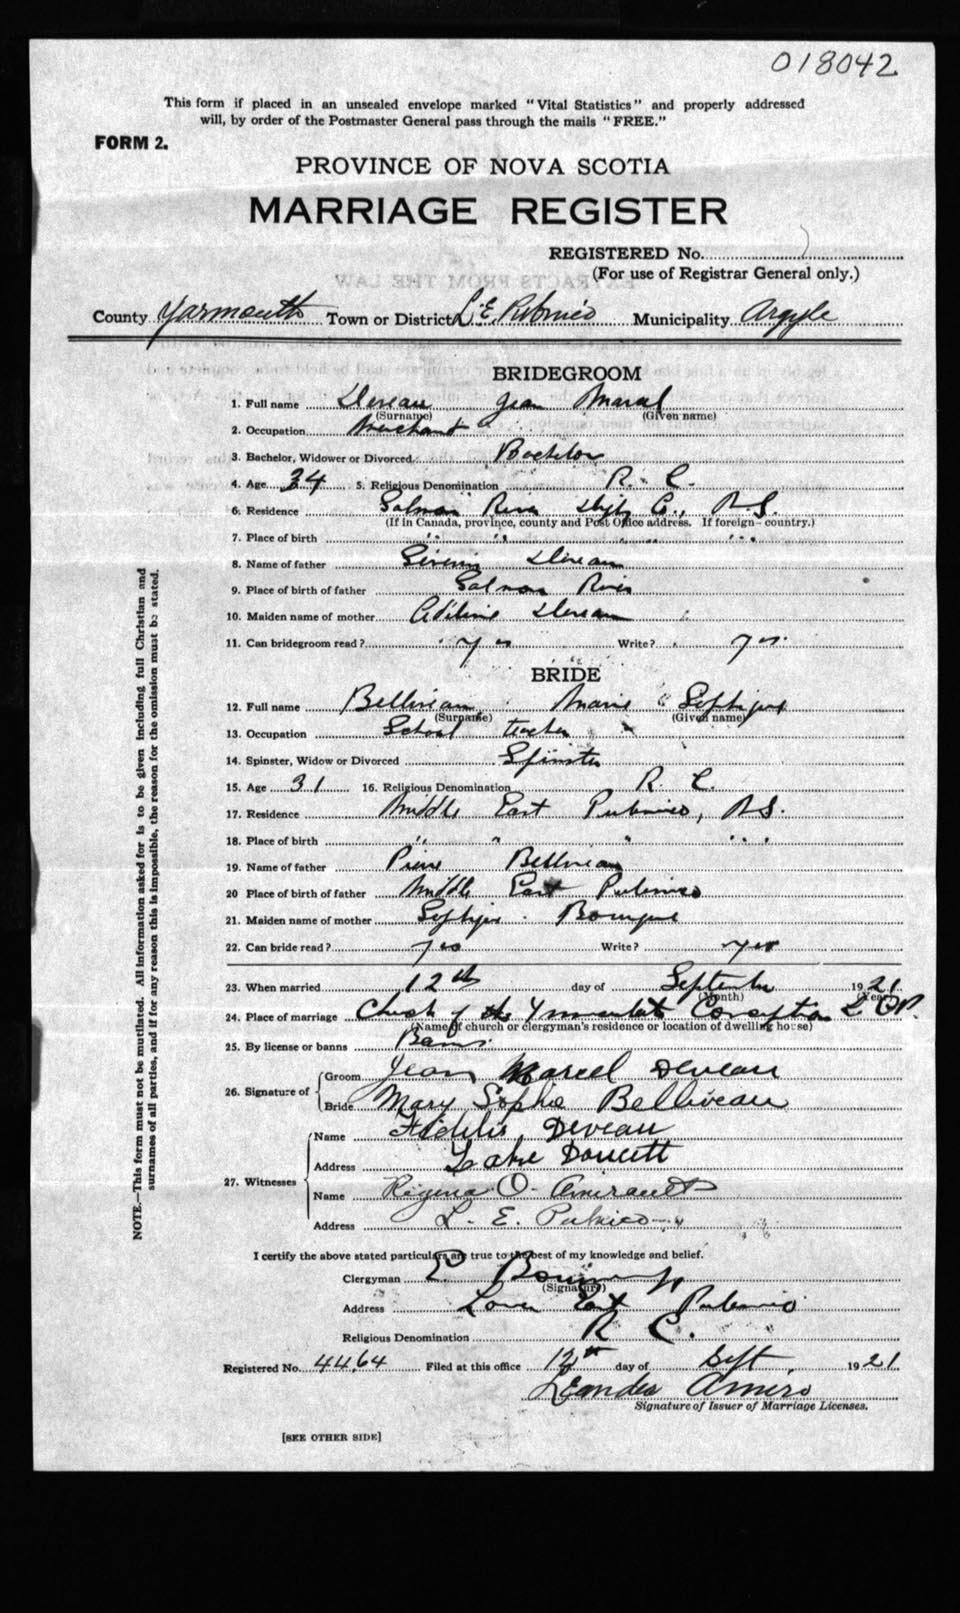 018042
This form if placed in an unsealed envelope marked "Vital Statistics" and properly addressed
will, by order of the Postmaster General pass through the mails "FREE."
FORM 2.
PROVINCE OF NOVA SCOTIA
MARRIAGE REGISTER
REGISTERED No.
(For use of Registrar General only.)
County Yarmouth Town or District L. E. Municipality Argyle
BRIDEGROOM
1. Full name Deveau Jean Marcel
(Surname) (Given name)
2. Occupation Merchant
3. Bachelor, Widower or Divorced Bachelor
4. Age 34 5. Religious Denomination R. C.
6. Residence Salmon River Digby Co., N.S.
(If in Canada, province, county and Post Office address. If foreign—country.)
7. Place of birth " " " "
8. Name of father Deveau
9. Place of birth of father Salmon River
10. Maiden name of mother Adeline Deveau
11. Can bridegroom read? yes Write? yes
BRIDE
12. Full name Belliveau Marie Sophie
(Surname) (Given name)
13. Occupation School teacher
14. Spinster, Widow or Divorced Spinster
15. Age 31 16. Religious Denomination R. C.
17. Residence Middle East Pubnico, N.S.
18. Place of birth " " " "
19. Name of father Pierre Belliveau
20 Place of birth of father Middle East Pubnico
21. Maiden name of mother Bourque
22. Can bride read? yes Write? yes
23. When married 12th day of September 1921
(Month) (Year)
24. Place of marriage Church of the Immaculate Conception L E P.
(Name of church or clergyman's residence or location of dwelling house)
25. By license or banns Banns
26. Signature of Groom Jean Marcel Deveau
Bride Mary Sophie Belliveau
27. Witnesses Name Fidelis Deveau
Address Lake Doucett
Name Regina O. Amirault
Address L. E. Pubnico
I certify the above stated particulars are true to the best of my knowledge and belief.
Clergyman E
(Signature)
Address Lower East Pubnico
Religious Denomination R C.
Registered No. 4464 Filed at this office 12th day of Sept. 1921
Leander Amiro
Signature of Issuer of Marriage Licenses.
[SEE OTHER SIDE]
NOTE.—This form must not be mutilated. All information asked for is to be given including full Christian and
surnames of all parties, and if for any reason this is impossible, the reason for the omission must be stated.